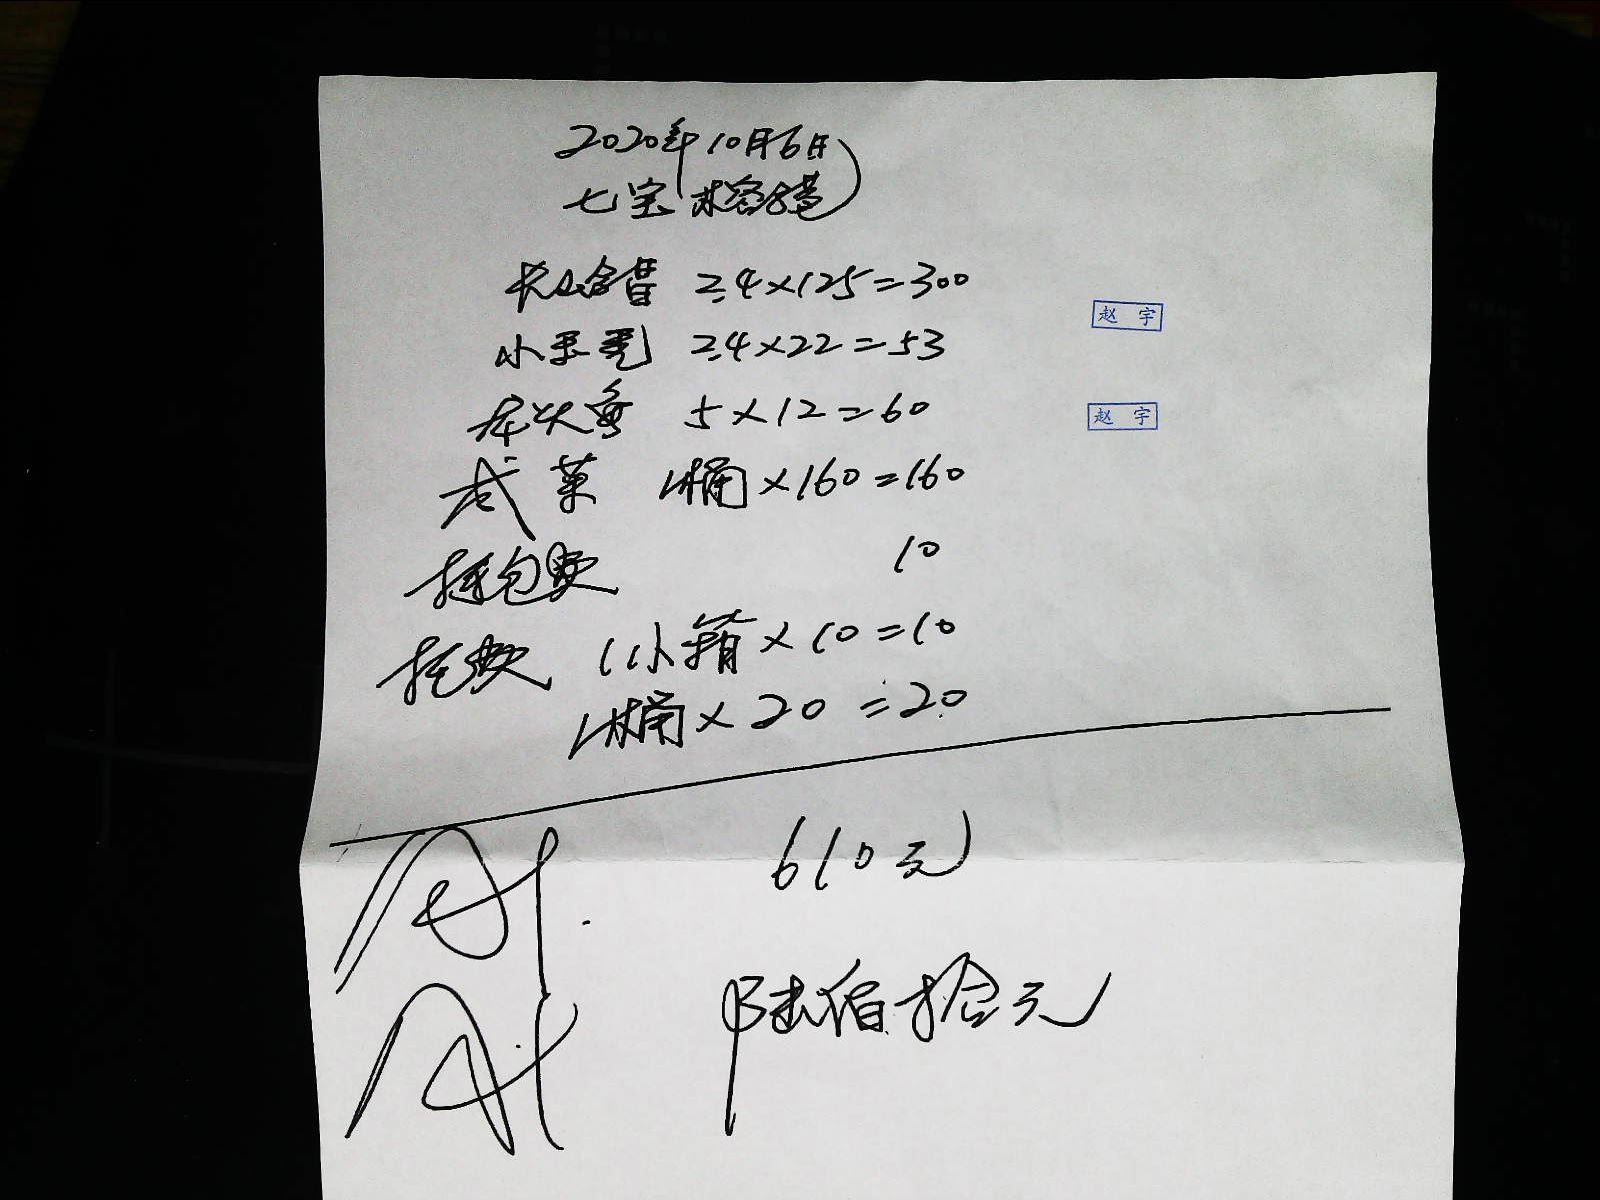 2020年10月6日
七宝
2.4×125=300
赵 宇
小 2.4×22=53
5×12=60
赵 宇
菜 1桶×160=160
包费 10
托费 1小箱×10=10
1桶×20=20
610元
陆佰拾元